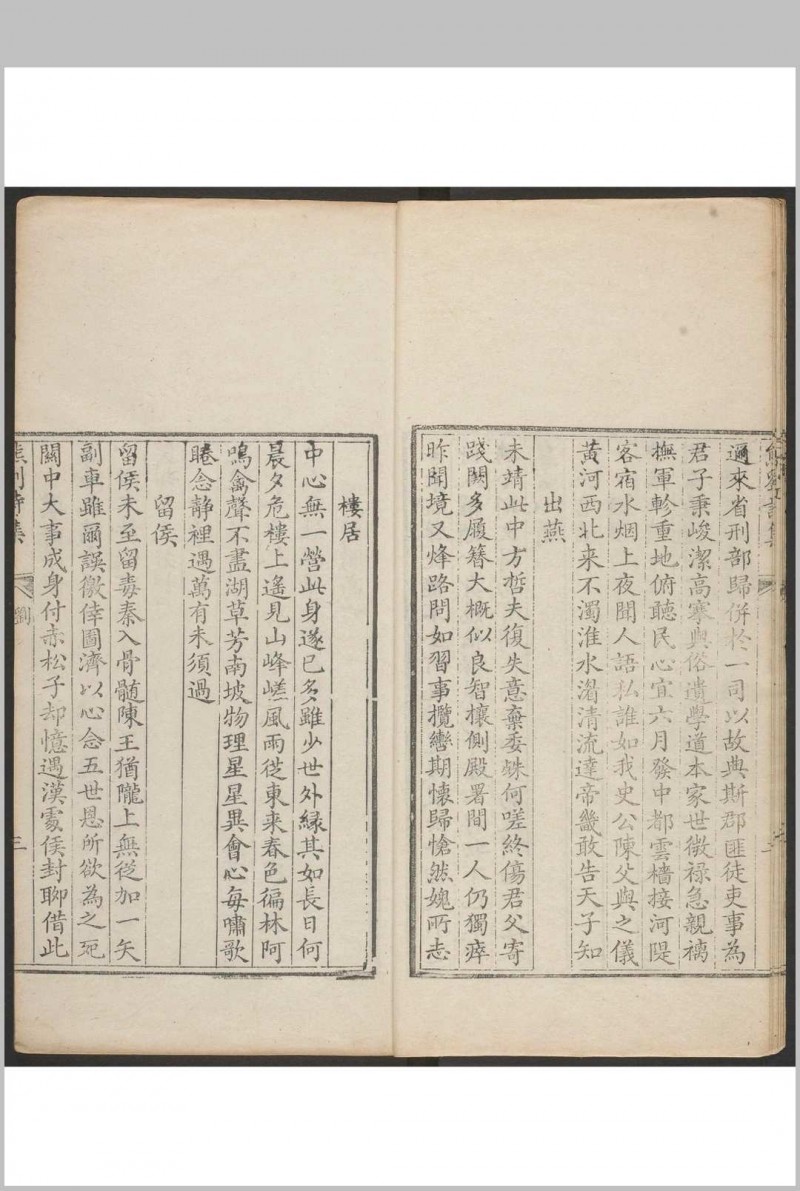 邇來省刑部歸併於一司以故典斯郡匪徒吏事為
君子秉峻潔高寒與俗遺學道本家世微祿急親禱
撫軍軫重地俯聽民心宜六月發中都雲檣接河隄
客宿水烟上夜聞人語私誰如我史公陳父與之儀
黃河西北来不濁淮水湝清流達帝畿敢告天子知
出燕
未靖此中方哲夫復失意棄委蛛何嗟終傷君父寄
踐闕多履簪大概似良智攘側殿署間一人仍獨瘁
昨聞境又烽路問如習事攬轡期懷歸愴然媿所志
樓居
中心無一營此身遂已多雖少世外緣其如長日何
晨夕危樓上遙見山峰嵯風雨從東来春色徧林阿
鳴禽聲不盡湖草芳南坡物理星星異會心每嘯歌
睠念静裡遇萬有未須過
留侯
留侯未至留毒秦入骨髓陳王猶隴上無從加一矢
副車雖爾誤徼倖圖濟以心念五世恩所欲為之死
關中大事成身付赤松子却憶遇漢䖏侯封聊借此
詩集
劉
三